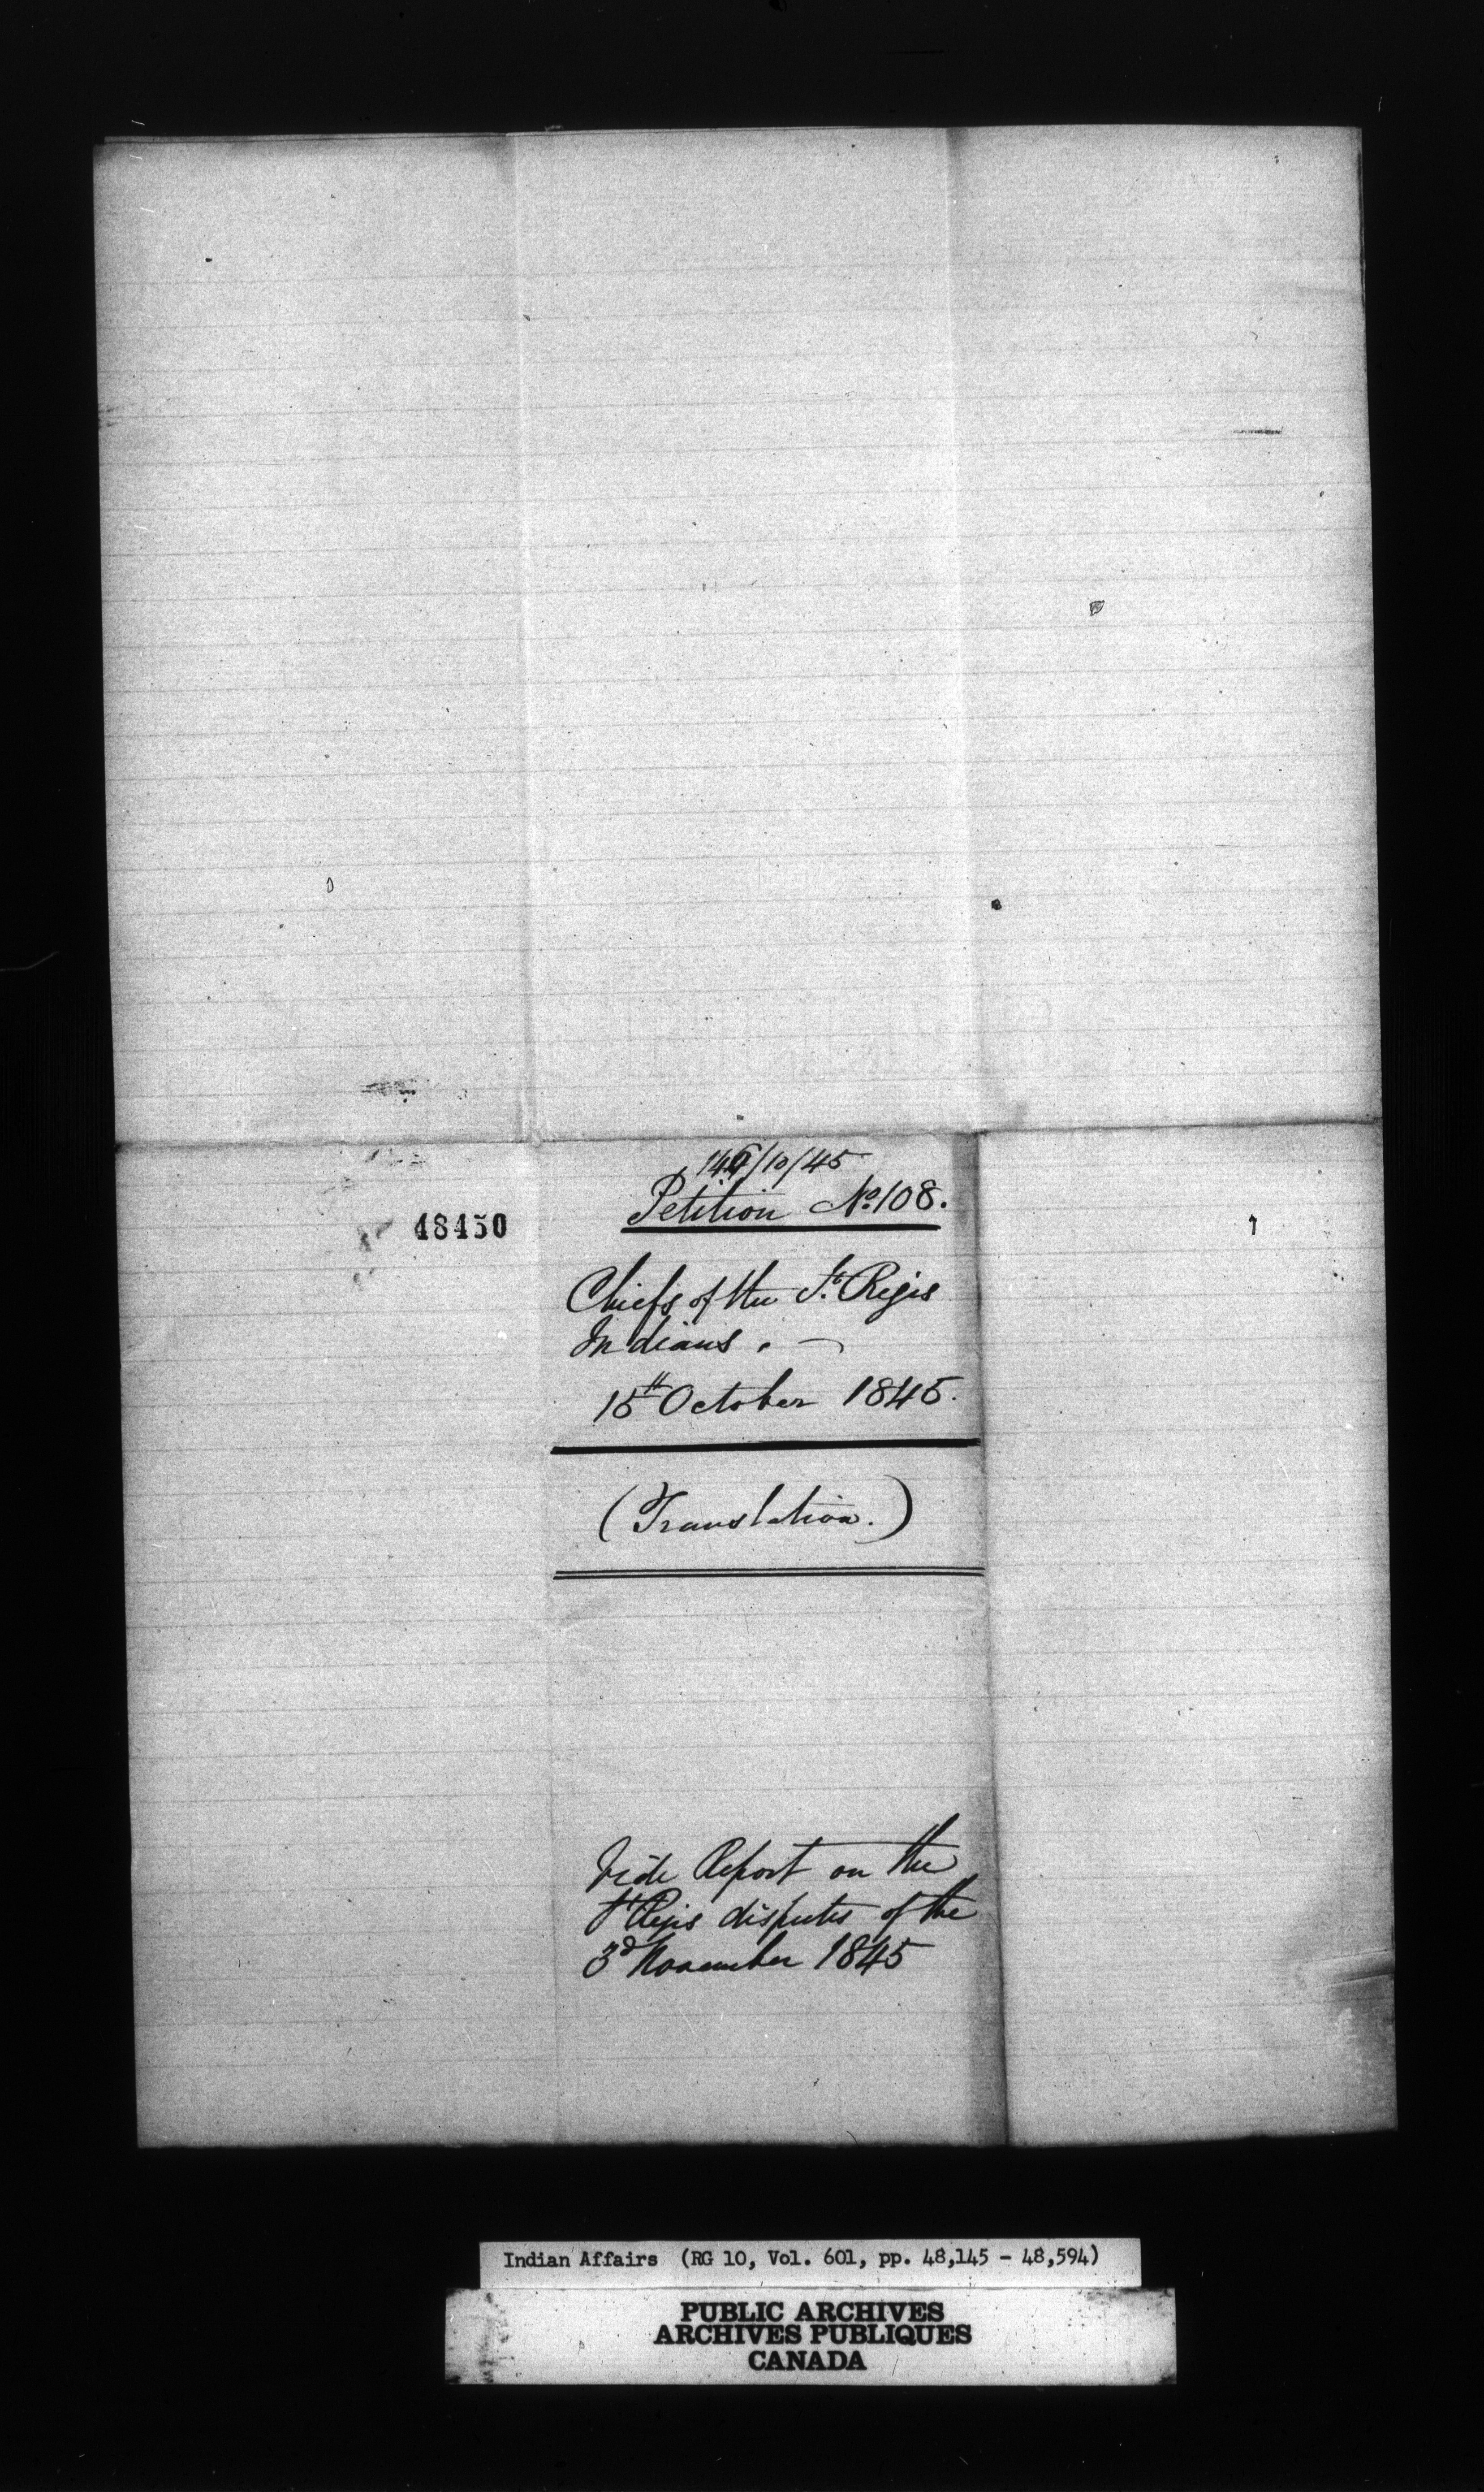 146/10/45
Petition No. 108.
48450
Chiefs of the St. Regis
Indians. —
15th October 1845.
(Translation.)
Vide Report on the
St Regis disputes of the
3d November 1845
Indian Affairs (RG 10, Vol. 601, pp. 48,145 - 48,594)
PUBLIC ARCHIVES
ARCHIVES PUBLIQUES
CANADA